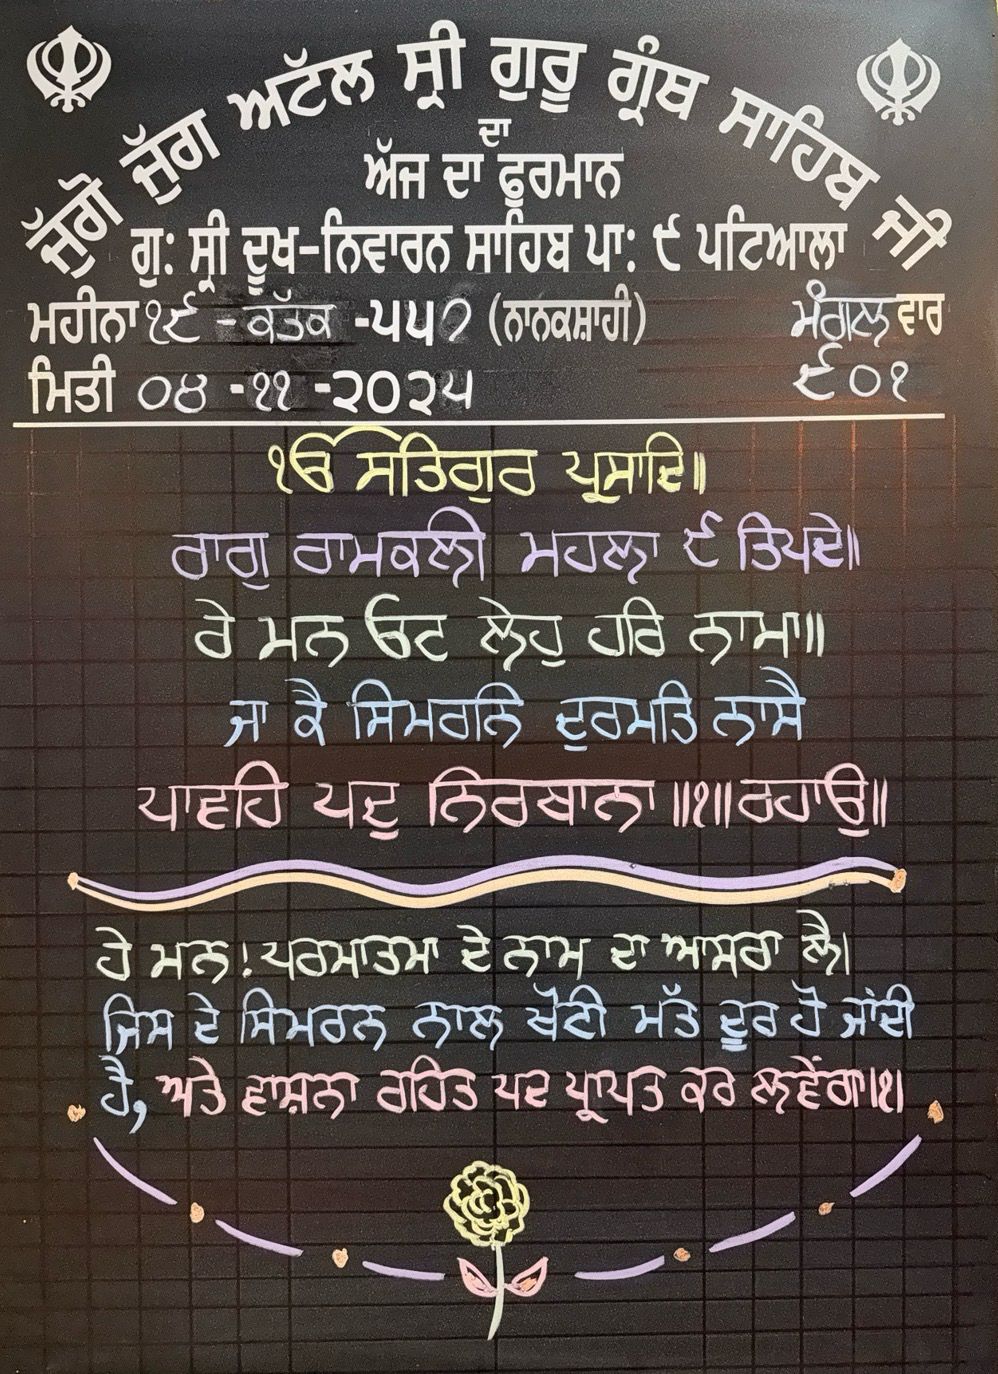 ਜੁੱਗੋ ਜੁੱਗ ਅਟੱਲ ਸ੍ਰੀ ਗੁਰੂ ਗ੍ਰੰਥ ਸਾਹਿਬ ਜੀ
ਦਾ
ਅੱਜ ਦਾ ਫੁਰਮਾਨ
ਗੁ: ਸ੍ਰੀ ਦੂਖ-ਨਿਵਾਰਨ ਸਾਹਿਬ ਪਾ: ੯ ਪਟਿਆਲਾ
ਮਹੀਨਾ ੧੯ - ਕੱਤਕ -੫੫੭ (ਨਾਨਕਸ਼ਾਹੀ) ਮੰਗਲਵਾਰ
ਮਿਤੀ ੦੪ -੧੧ -੨੦੨੫ ੯੦੧
ੴ ਸਤਿਗੁਰ ਪ੍ਰਸਾਦਿ॥
ਰਾਗੁ ਰਾਮਕਲੀ ਮਹਲਾ ੯ ਤਿਪਦੇ॥
ਰੇ ਮਨ ਓਟ ਲੇਹੁ ਹਰਿ ਨਾਮਾ॥
ਜਾ ਕੈ ਸਿਮਰਨਿ ਦੁਰਮਤਿ ਨਾਸੈ
ਪਾਵਹਿ ਪਦੁ ਨਿਰਬਾਨਾ ॥੧॥ ਰਹਾਉ॥
ਹੇ ਮਨ! ਪਰਮਾਤਮਾ ਦੇ ਨਾਮ ਦਾ ਆਸਰਾ ਲੈ।
ਜਿਸ ਦੇ ਸਿਮਰਨ ਨਾਲ ਖੋਟੀ ਮੱਤ ਦੂਰ ਹੋ ਜਾਂਦੀ
ਹੈ, ਅਤੇ ਵਾਸ਼ਨਾ ਰਹਿਤ ਪਦ ਪ੍ਰਾਪਤ ਕਰ ਲਵੇਂਗਾ।੧।